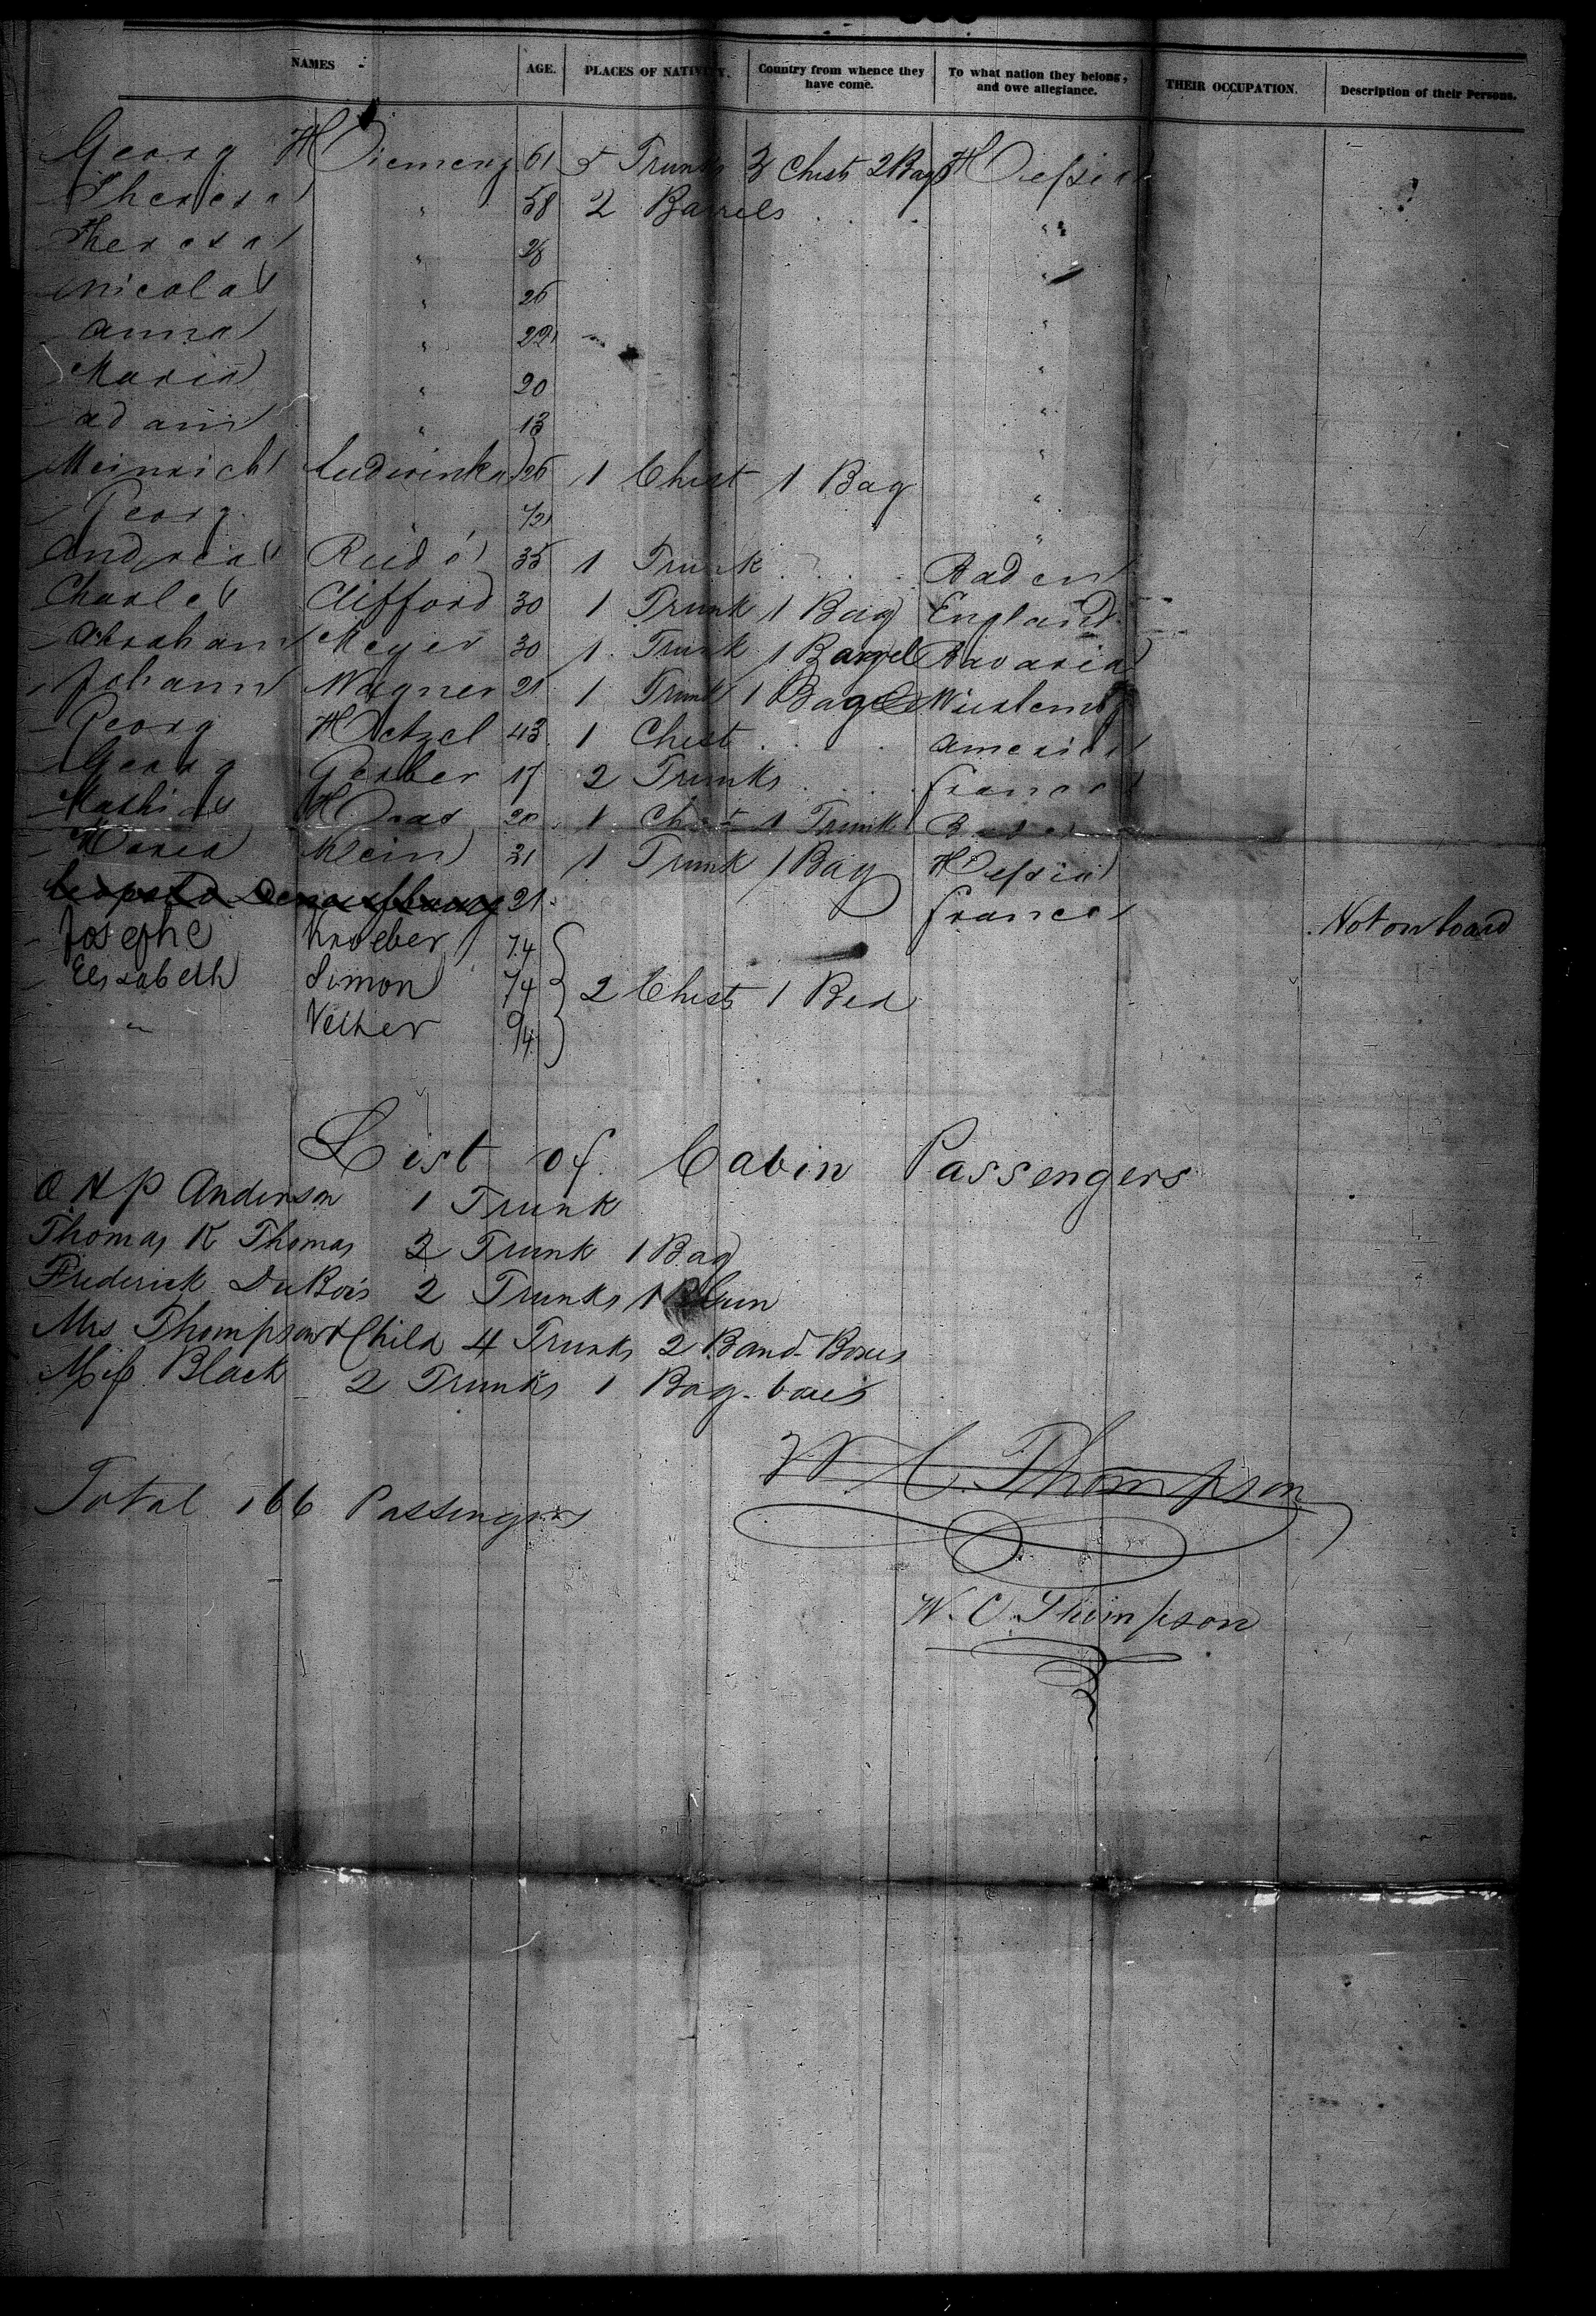 NAMES AGE. PLACES OF NATIVITY. Country from whence they have come. To what nation they belong, and owe allegiance. THEIR OCCUPATION. Description of their Persons.
Georg 61 5 Trunks 3 Chests 2 Bags Hessia
Theresa " 58 2 Barrels "
Theresa " "
Nicolas " 26 "
Anna " 22 "
Maria " 20 "
Adam " 13 "
Heinrich 26 1 Chest 1 Bag "
Georg "
Andreas 35 1 Trunk Baden
Charles Clifford 30 1 Trunk 1 Bag England
Abraham Meyer 30 1 Trunk 1 Barrel Bavaria
Johann Wagner 21 1 Trunk 1 Bag
Georg Hetzel 43 1 Chest America
Georg Gerber 17 2 Trunks France
Mathias Haas 20 1 Chest 1 Trunk
Maria Klein 31 1 Trunk 1 Bag Hessia
21 France Not on board
Josephe Kroeber
Elisabeth Simon 2 Chests 1 Bed
"
List of Cabin Passengers
O H P Anderson 1 Trunk
Thomas K Thomas 2 Trunk 1 Bag
Frederick DuBois 2 Trunks 1 Gun
Mrs Thompson & Child 4 Trunks 2 Band-Boxes
Miss Black 2 Trunks 1 Bag
Total 166 Passengers
W C. Thompson
W. C. Thompson